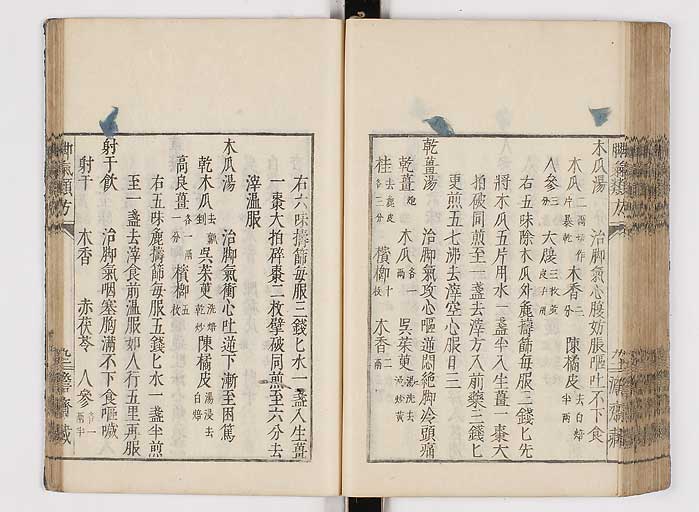 木瓜湯 治脚氣心腹妨脹嘔吐不下食
木瓜二兩切作片曝乾 木香三分 陳橘皮去白焙半兩
人參三分 大腹三枚
右五味除木瓜外麄擣篩每服三錢匕先
將木瓜五片用水一盞半入生薑一棗大
拍破同煎至一盞去滓方入前藥三錢匕
更煎五七沸去滓空心服日三
乾薑湯 治脚氣攻心嘔逆悶絶脚冷頭痛
乾薑炮 木瓜各一兩 吳茱萸湯洗去涎炒黄
桂去麄皮各三分 檳榔 木香二
右六味擣篩每服三錢匕水一盞入生薑
一棗大拍碎棗二枚擘破同煎至六分去
滓溫服
木瓜湯 治脚氣衝心吐逆下漸至困篤
乾木瓜去瓤 吳茱萸洗焙乾炒 陳橘皮湯浸去白焙
高良薑各一兩一分 檳榔五枚
右五味麄擣篩每服五錢匕水一盞半煎
至一盞去滓食前溫服如人行五里再服
射干飲 治脚氣咽塞胸滿不下食嘔噦
射干 木香 赤茯苓 人參各一兩半
脚氣類方